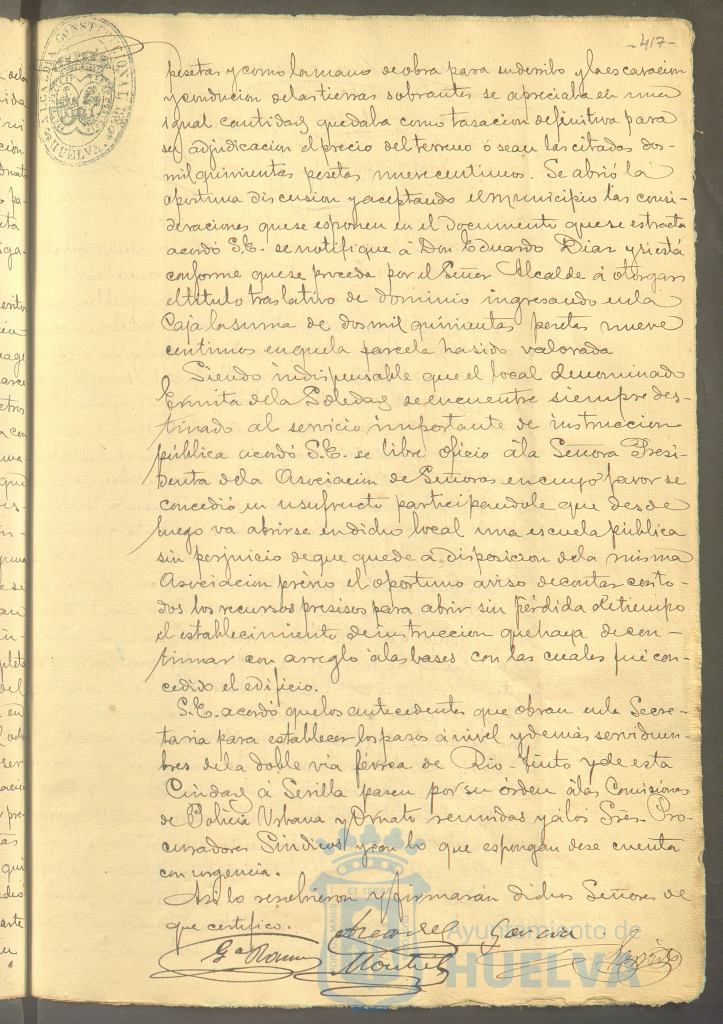 -417-
ALCALDIA CONSTITUCIONAL DE HUELVA
pesetas y como la mano de obra para su derribo y la escavacion
y conducion de las tierras sobrantes se apreciaba en una
igual cantidad, quedaba como tasacion definitiva para
su adjudicacion el precio del terreno ó sean las citadas dos-
mil quinientas pesetas nueve centimos. Se abrió la
oportuna discusion y aceptando el municipio las consi-
deraciones que se esponen en el documento que se estracta
acordó S.E. se notifique á Don Eduardo Diaz y si está
conforme que se proceda por el Señor Alcalde á otorgar
el titulo traslativo de dominio ingresando en la
Caja la suma de dos mil quinientas pesetas nueve
centimos en que la parcela ha sido valorada
Siendo indispensable que el local denominado
Ermita de la Soledad se encuentre siempre des-
tinado al servicio importante de instruccion
pública acordó S.E. se libre oficio á la Señora Presi-
denta de la Asociacion de Señoras en cuyo favor se
concedió en usufructo participandole que desde
luego va abrirse en dicho local una escuela pública
sin perjuicio de que quede a disposicion de la misma
Asociacion prévio el oportuno aviso de contar con to-
dos los recursos presisos para abrir sin pérdida de tiempo
el establecimiento de instruccion que haya de con-
tinuar con arreglo á las bases con las cuales fué con-
cedido el edificio.
S.E. acordó que los antecedentes que obran en la Secre-
taria para establecer los pasos á nivel y demás servidum-
bres de la doble via férrea de Rio-Tinto y de esta
Ciudad á Sevilla pasen por su órden á las Comisiones
de Policia Urbana y Ornato reunidas y á los Sres. Pro-
curadores Sindicos y con lo que espongan dese cuenta
con urgencia.
Asi lo resolvieron y firmarán dichos Señores de
que certifico.
Garcia
Ga Ramos
Montiel
Ayuntamiento de
HUELVA